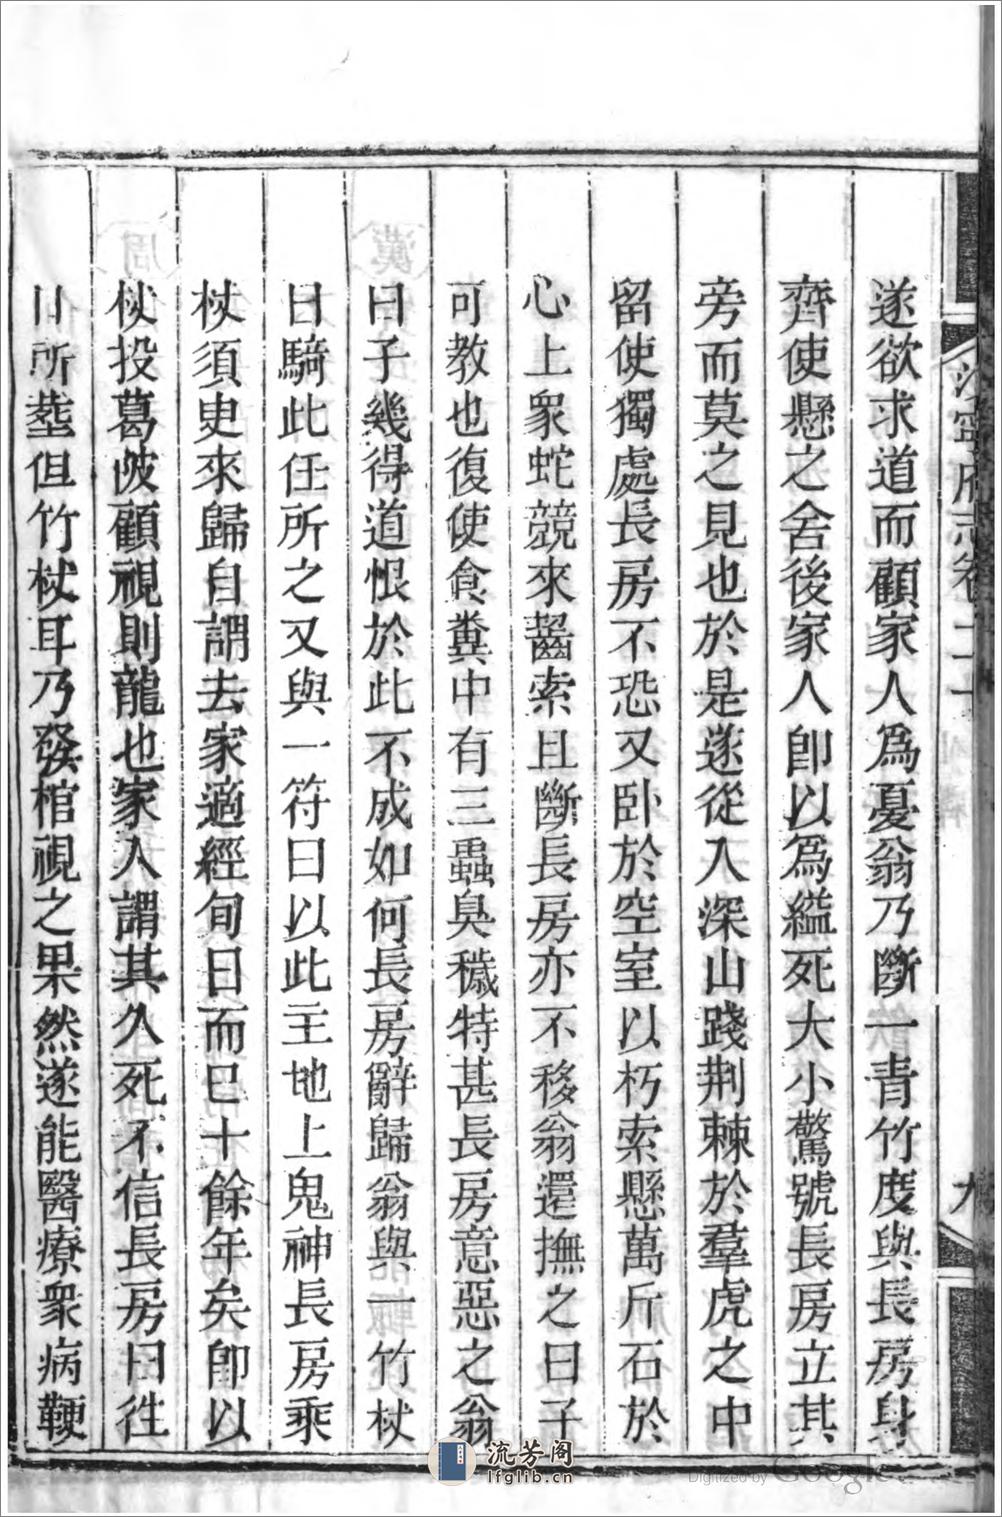 遂欲求道而顧家人爲憂翁乃斷一青竹度與長房身
齊使懸之舍後家人卽以爲縊死大小驚號長房立其
旁而莫之見也於是遂從入深山踐荆棘於羣虎之中
留使獨處長房不恐又卧於空室以朽索懸萬斤石於
心上衆蛇競來齧索且斷長房亦不移翁還撫之曰子
可教也復使食糞中有三蟲臭穢特甚長房意惡之翁
曰子幾得道恨於此不成如何長房辭歸翁與一竹杖
曰騎此任所之又與一符曰以此主地上鬼神長房乘
杖須臾來歸自謂去家適經旬日而已十餘年矣卽以
杖投葛陂顧視則龍也家人謂其久死不信長房曰徃
日所塟但竹杖耳乃發棺視之果然遂能醫療衆病鞭
府志卷二十
九
流芳阁
lfglib.cn
Digitized by Google